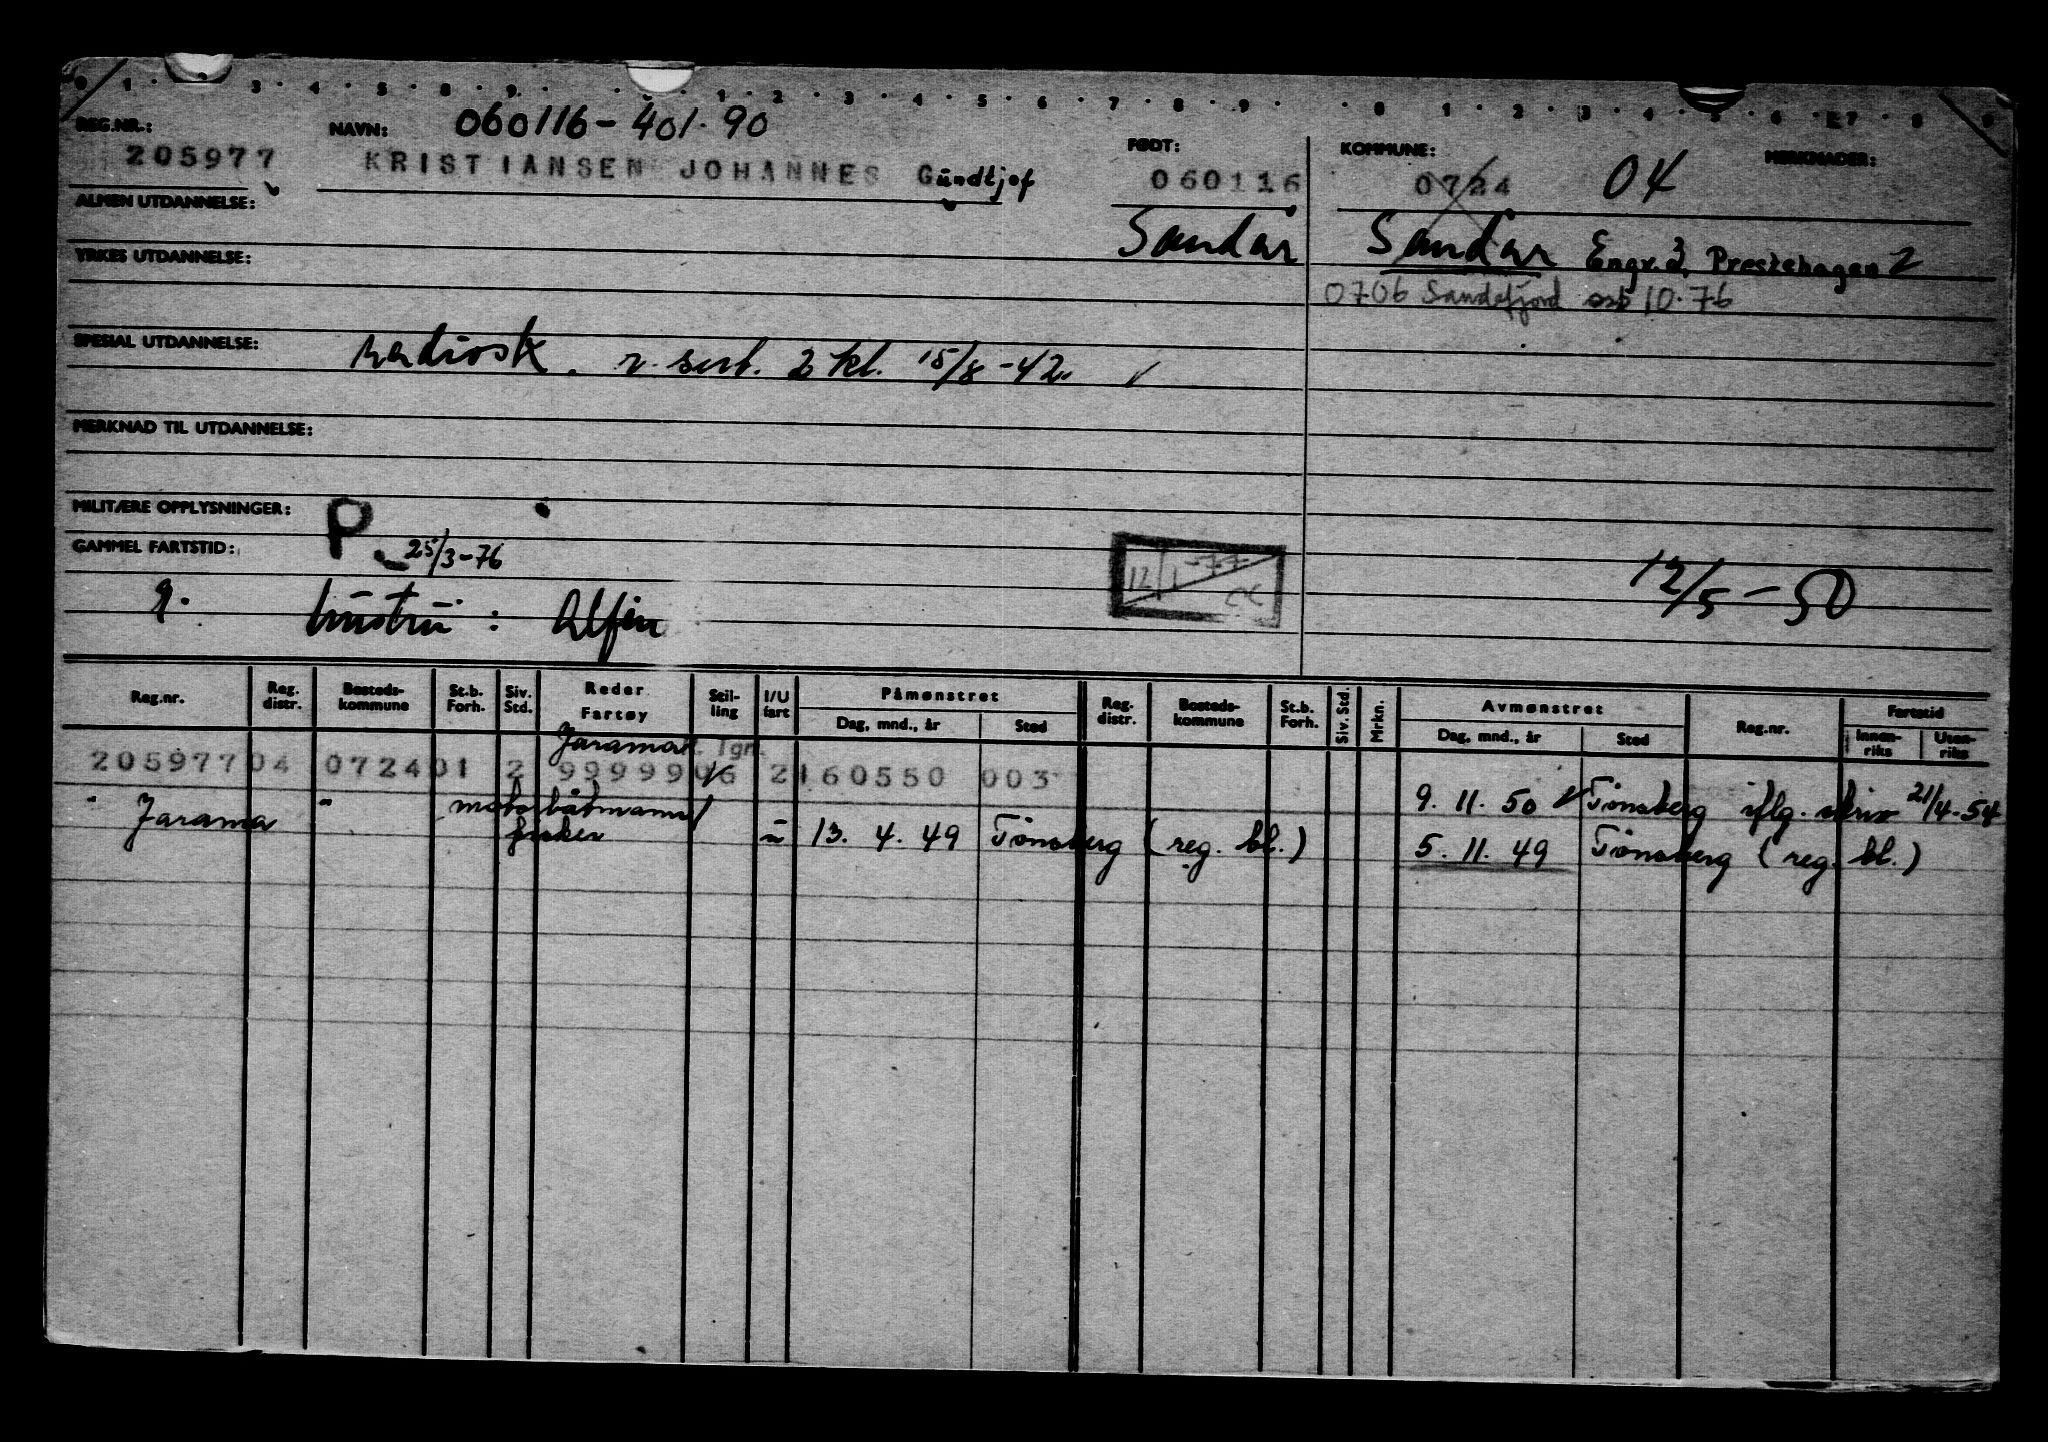 0 1 2 3 4 5 8 9 1 2 3 4 5 6 7 8 9 0 1 2 3 4 5 6 7 8 9
REG.NR.: NAVN: 060116-401.90 FØDT: KOMMUNE: MERKNADER:
205977 KRISTIANSEN JOHANNES Gündtjof 060116 0724 04
ALMEN UTDANNELSE: Sandar Sandar Engv. 3, Prestehagen 2
YRKES UTDANNELSE: 0706 Sandefjord 10.76
SPESIAL UTDANNELSE: radiosk. r. sert. 2 kl. 15/8-42
MERKNAD TIL UTDANNELSE:
MILITÆRE OPPLYSNINGER: P
GAMMEL FARTSTID: 25/3-76 12/1-77 12/5-50
g. hustru: Alfin
Reg.nr. Reg. distr. Bosteds-kommune St.b. Forh. Siv. Std. Reder Fartøy Stil-ling I/U fart Påmønstret Dag, mnd., år Sted Reg. distr. Bosteds-kommune St.b. Forh. Siv. Std. Mrkn. Avmønstret Dag, mnd., år Sted Reg.nr. Fartstid Innen-riks Uten-riks
Jarama Tgr.
205977 04 0724 01 2 99999 06 2 160550 003 9.11.50 Tönsberg iflg. skriv 21/4-54
" Jarama " motorbåtmann/
fisker ü 13.4.49 Tönsberg (reg. bl.) 5.11.49 Tönsberg (reg. bl.)